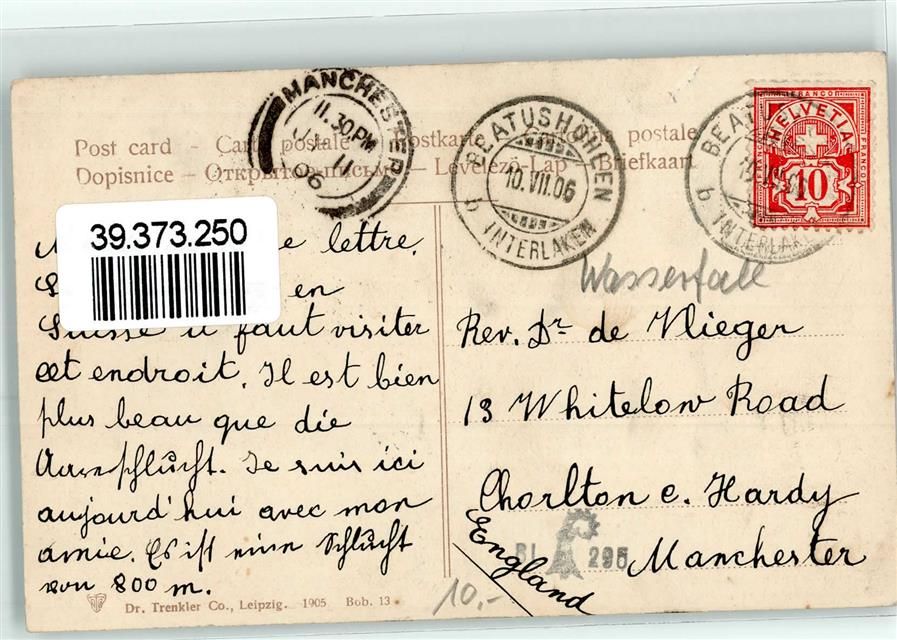 MANCHESTER
11.30PM
JY 11
06
BEATUSHÖHLEN
10.VII.06
b INTERLAKEN
BEATUSHÖHLEN
b INTERLAKEN
FRANCO
HELVETIA
10
Post card - Carte postale - Postkarte - postale
Dopisnice - Открытое письмо - Levelező-Lap - Briefkaart
39.373.250
lettre.
en
Suisse il faut visiter
cet endroit. Il est bien
plus beau que die
Aareschlucht. Je suis ici
aujourd'hui avec mon
amie. Es ist eine Schlucht
von 800 m.
Wasserfall
Rev. Dr de Vlieger
13 Whitelow Road
Chorlton c. Hardy
Manchester
England
BI 295
10.-
Dr. Trenkler Co., Leipzig. 1905 Bob. 13